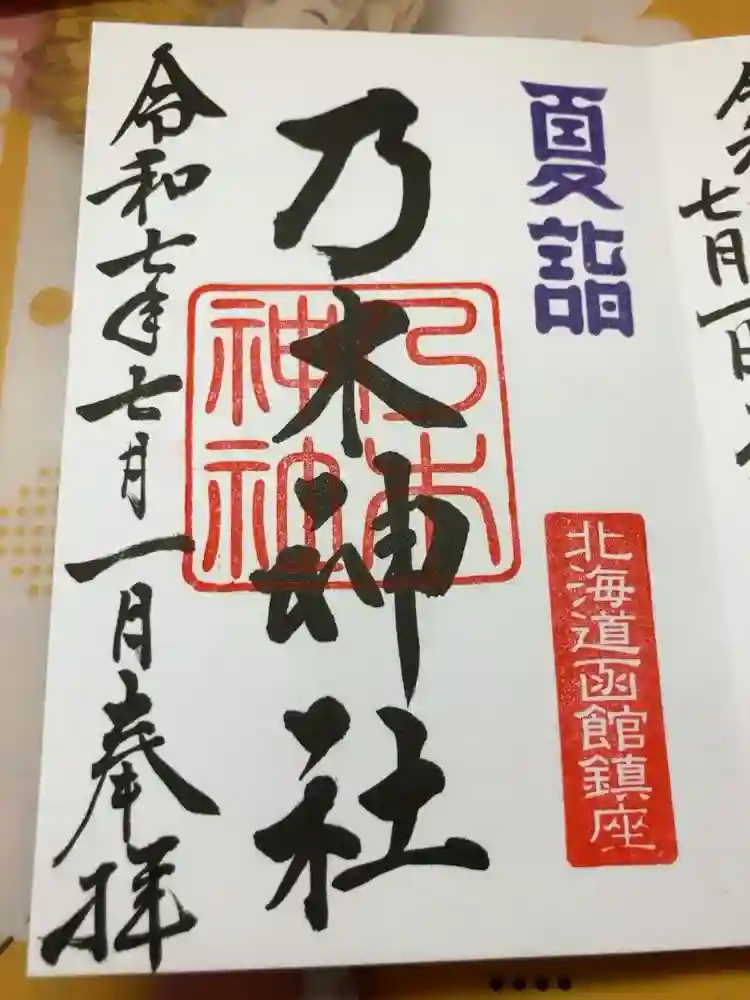 夏詣
北海道函館鎮座
乃木神社
乃木神社
令和七年七月一日奉拝
七月一日